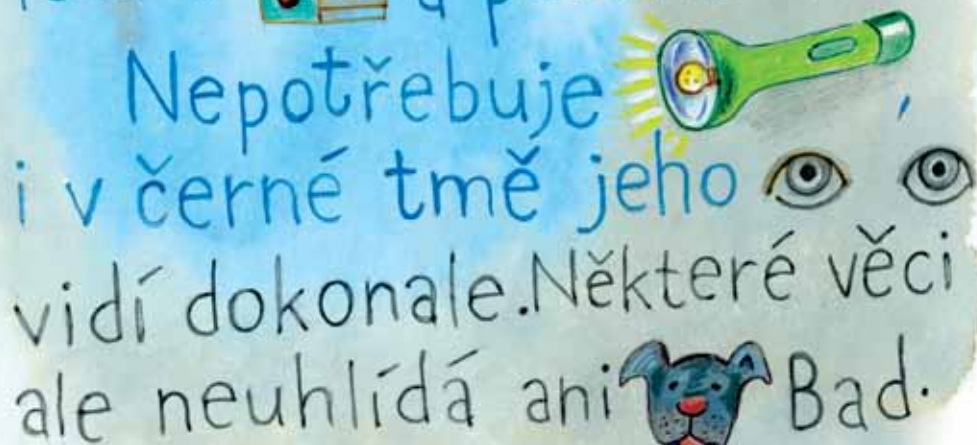 a
Nepotřebuje
i v černé tmě jeho
vidí dokonale. Některé věci
ale neuhlídá ani Bad.